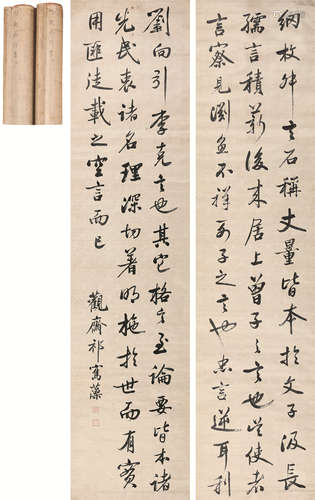 納枚叔之言石稱丈量皆本於文子汲長
孺言積薪後來居上曾子之言也是使者
言察見淵魚不祥列子之言也忠言逆耳利
劉向引李克之也其它格言至論要皆本諸
先民表諸名理深切著明施於世而有實
用匪徒載之空言而已
觀齋祁寯藻